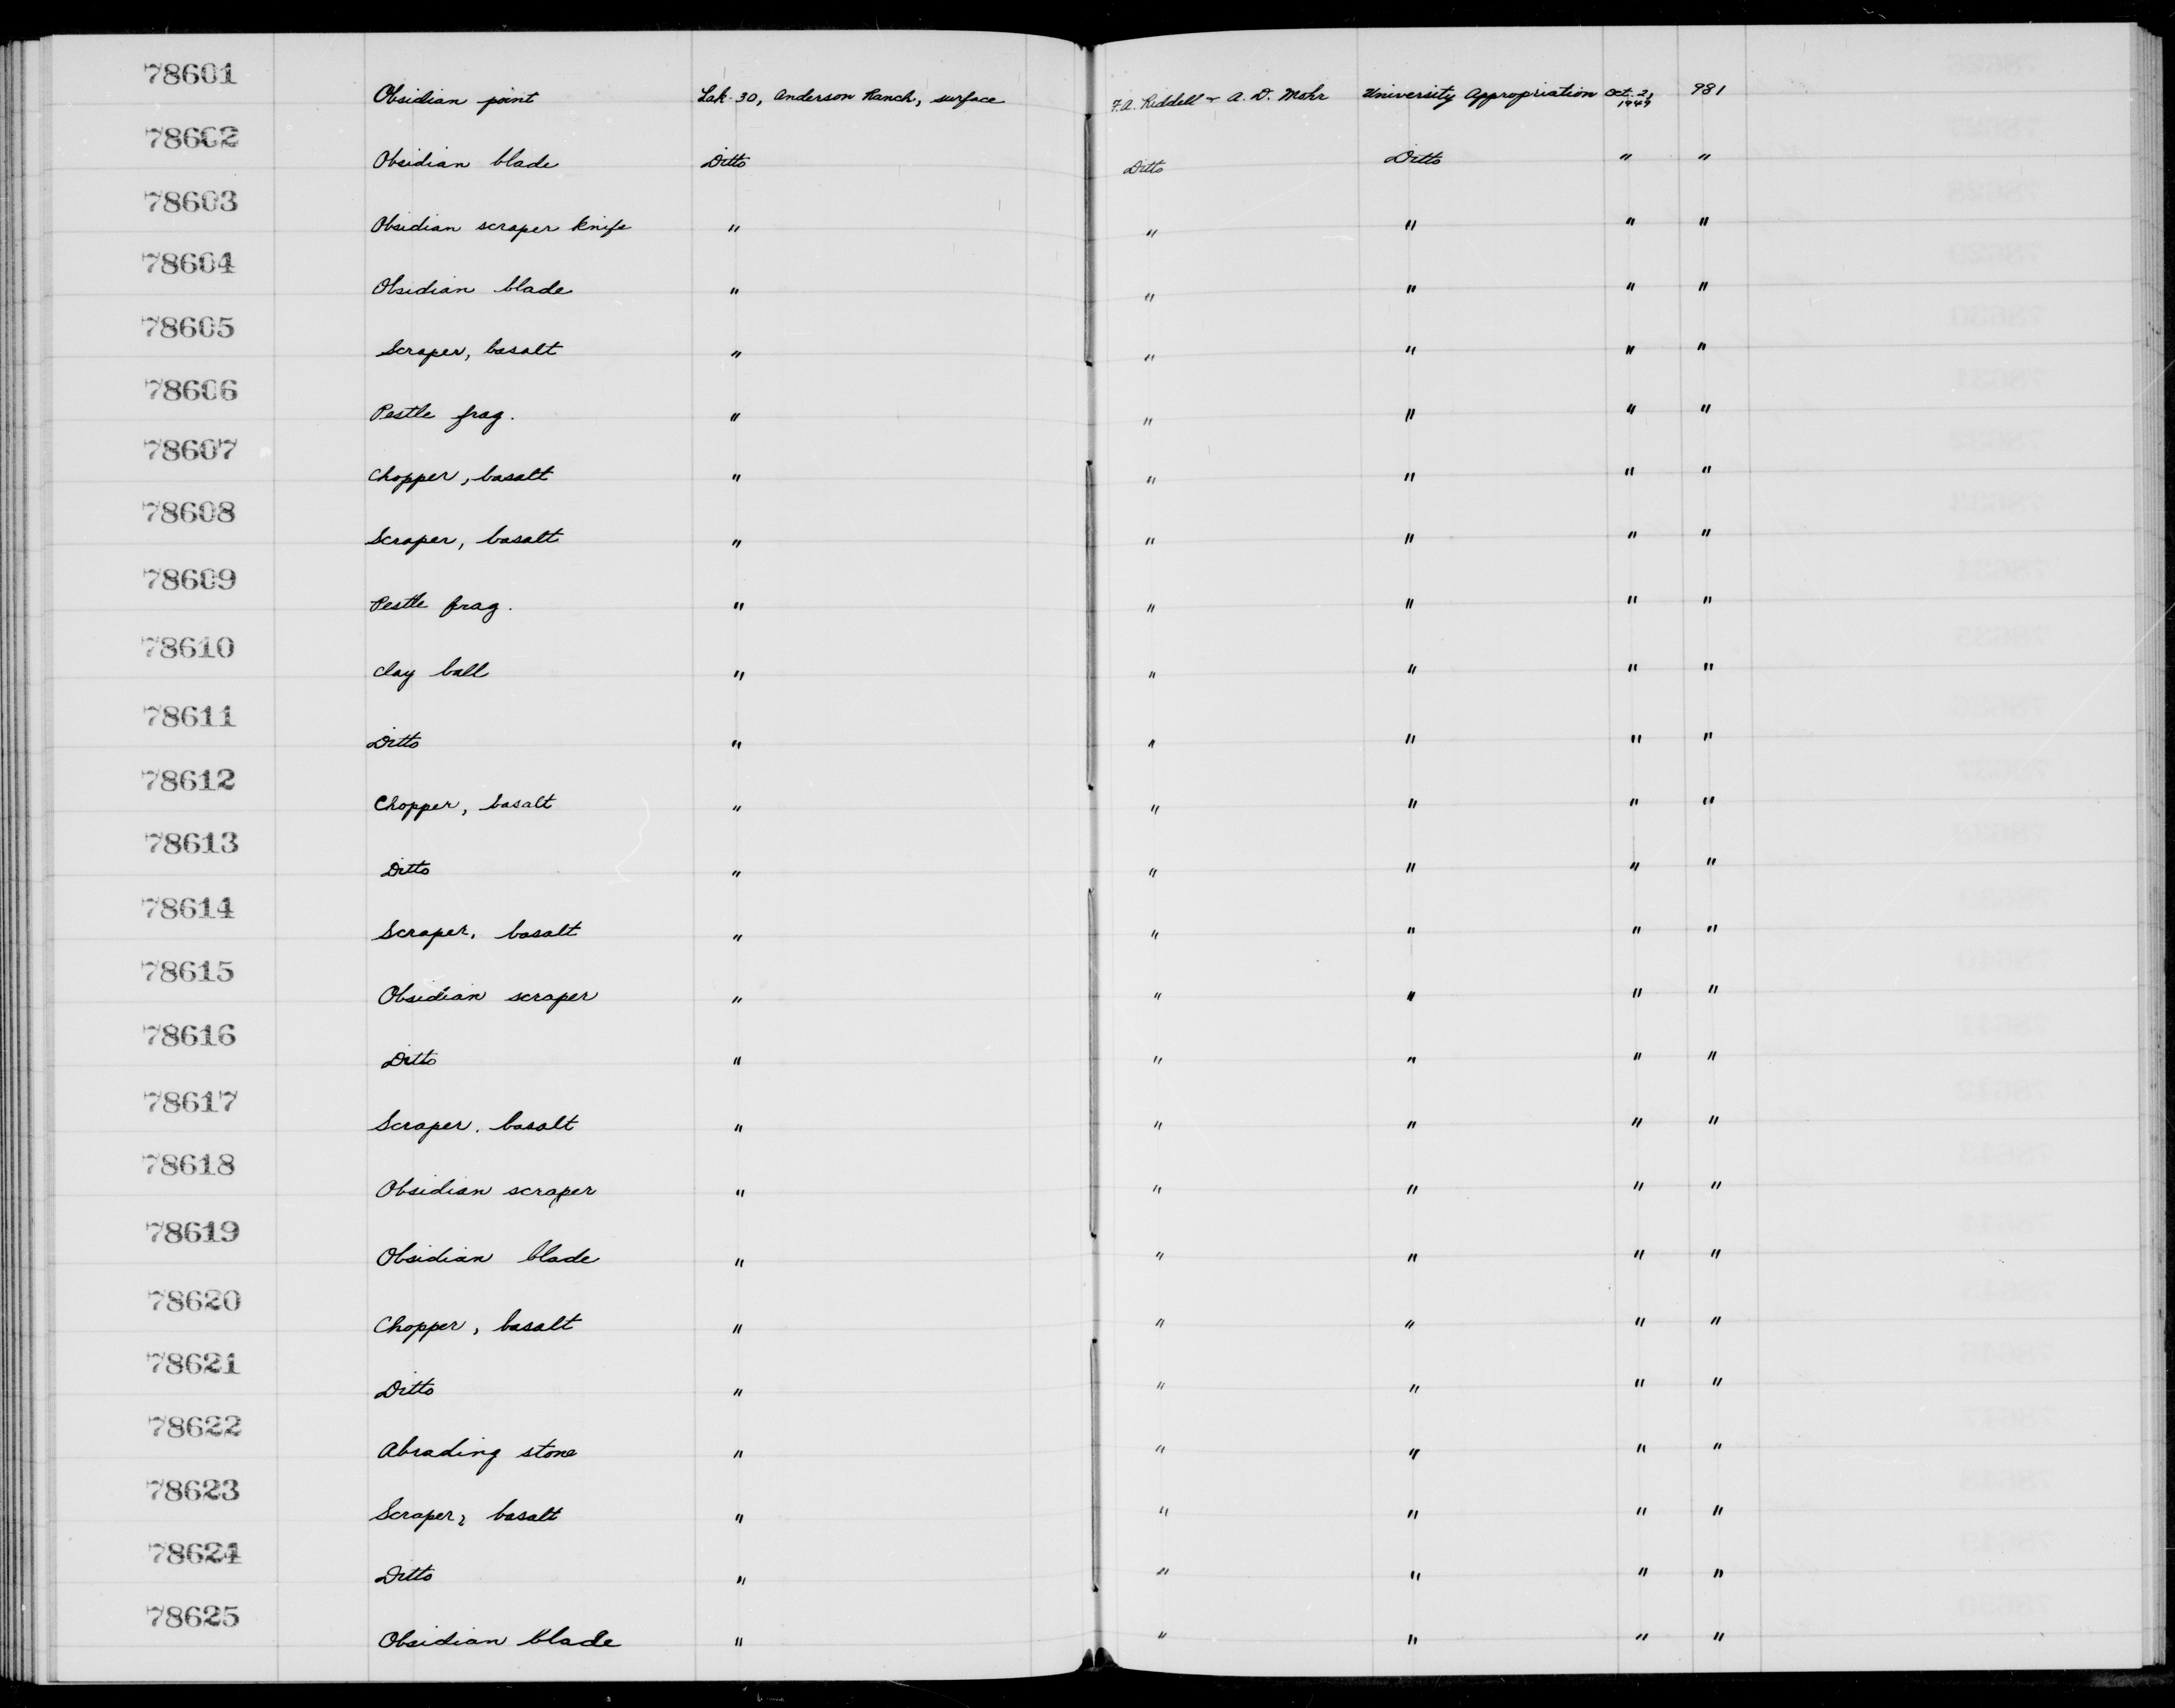 78601
Obsidian point Lak-30, Anderson Ranch, surface F.A. Riddell + A.D. Mohr University Appropriation Oct. 2, 1949 981
78602
Obsidian blade Ditto Ditto Ditto " "
78603
Obsidian scraper knife " " " " "
78604
Obsidian blade " " " " "
78605
Scraper, basalt " " " " "
78606
Pestle frag. " " " " "
78607
Chopper, basalt " " " " "
78608
Scraper, basalt " " " " "
78609
Pestle frag. " " " " "
78610
Clay ball " " " " "
78611
Ditto " " " " "
78612
Chopper, basalt " " " " "
78613
Ditto " " " " "
78614
Scraper, basalt " " " " "
78615
Obsidian scraper " " " " "
78616
Ditto " " " " "
78617
Scraper, basalt " " " " "
78618
Obsidian scraper " " " " "
78619
Obsidian blade " " " " "
78620
Chopper, basalt " " " " "
78621
Ditto " " " " "
78622
Abrading stone " " " " "
78623
Scraper, basalt " " " " "
78624
Ditto " " " " "
78625
Obsidian blade " " " " "